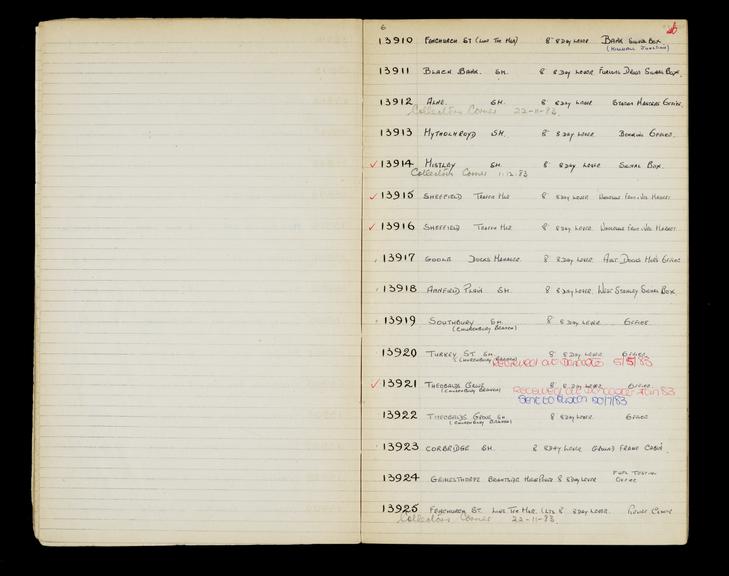 6
13910 FENCHURCH ST (LINE TFC MGR) 8" 8 DAY LEVER BARK SIGNAL BOX
13911 BLACK BANK. SM. 8 8 DAY LEVER SIGNAL BOX.
13912 ALNE. SM. 8 8 DAY LEVER STATION MASTERS OFFICE.
Collectors Corner 22-11-83.
13913 MYTHOLMROYD SM. 8 8 DAY LEVER. BOOKING OFFICE.
13914 MISTLEY SM. 8 8 DAY LEVER SIGNAL BOX.
Collectors Corner 1.12.83
13915 SHEFFIELD TRAFFIC MGR 8 8 DAY LEVER WHOLESALE FRUIT & VEG MARKET
13916 SHEFFIELD TRAFFIC MGR. 8 8 DAY LEVER. WHOLESALE FRUIT & VEG MARKET.
13917 GOOLE DOCKS MANAGER. 8 8 DAY LEVER. ASST DOCKS MGR'S OFFICE
13918 ANNFIELD PLAIN SM. 8 8 DAY LEVER. WEST STANLEY SIGNAL BOX
13919 SOUTHBURY SM. 8 8 DAY LEVER OFFICE.
(CHURCHBURY BRANCH)
13920 TURKEY ST. SM. 8 8 DAY LEVER OFFICE.
(CHURCHBURY BRANCH) RECEIVED AT 5/5/83
13921 THEOBALDS GROVE 8 8 DAY LEVER. OFFICE
(CHURCHBURY BRANCH) RECEIVED AT 83
SENT TO 20/7/83
13922 THEOBALDS GROVE SM. 8 8 DAY LEVER. OFFICE
(CHURCHBURY BRANCH)
13923 CORBRIDGE SM. 8 8 DAY LEVER GROUND FRAME CABIN
13924 GRIMESTHORPE BRIGHTSIDE 8 8 DAY LEVER FUEL TESTING
OFFICE
13925 FENCHURCH ST. LINE TFC MGR. 8 8 DAY LEVER.
Collectors Corner 22-11-83.